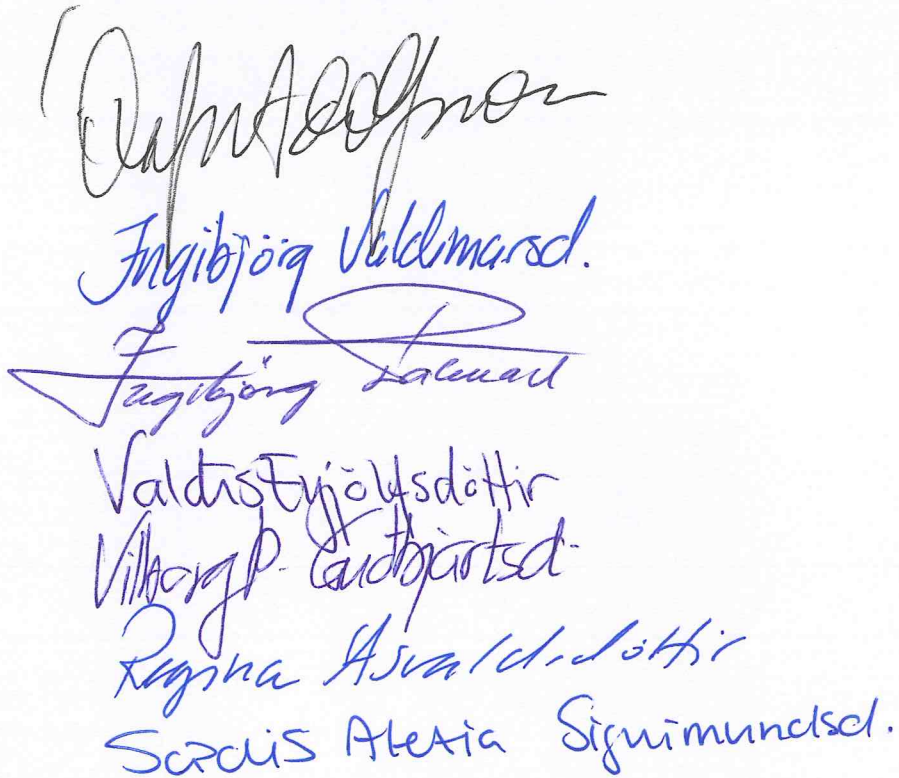 Ólafur Adolfsson
Ingibjörg Valdimarsd.
Ingibjörg Pálmad
Valdís Eyjólfsdóttir
Vilborg Þ. Guðbjartsd.
Regína Ásvaldsdóttir
Sædís Alexía Sigmundsd.